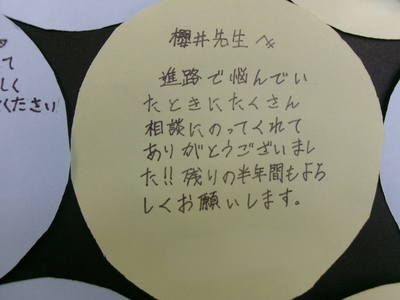 櫻井先生へ
進路で悩んでい
たときにたくさん
相談にのってくれて
ありがとうございまし
た!! 残りの半年間もよろ
しくお願いします。
て
しく
ください!